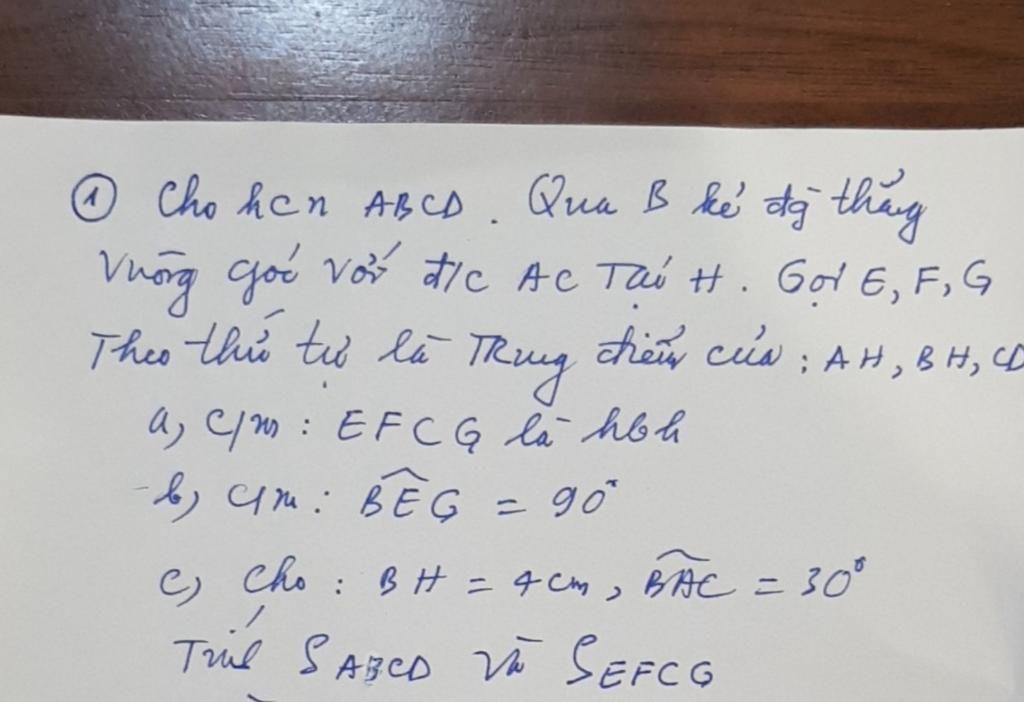 ① Cho hcn ABCD. Qua B kẻ đg thẳng
vuông góc với đ/c AC Tại H. Gọi E, F, G
Theo thứ tự là Trung điểm của: AH, BH, CD
a, C/m: EFCG là hbh
b, C/m: BEG = 90°
c, Cho: BH = 4cm, BAC = 30°
Tính S ABCD và S EFCG